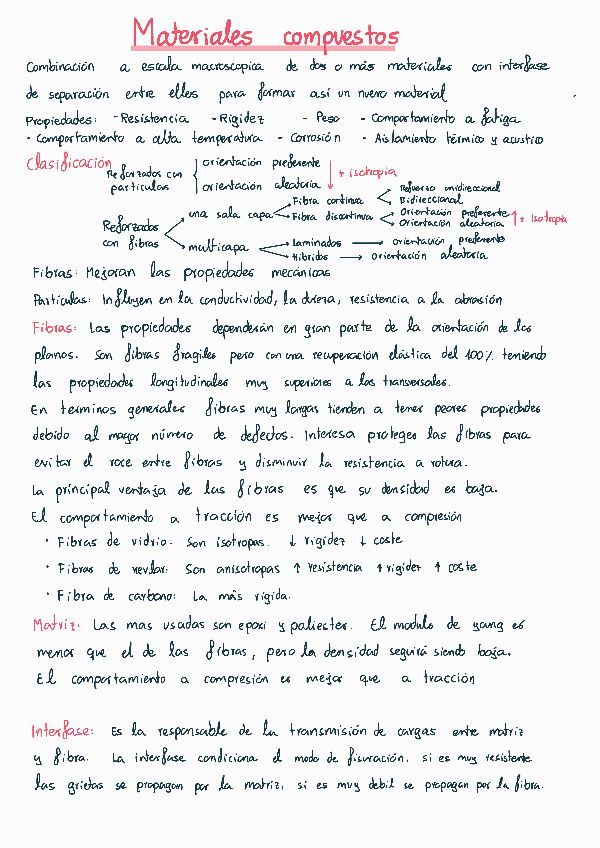 Materiales compuestos
Combinación a escala macroscopica de dos o más materiales con interfase
de separación entre elles para formar así un nuevo material
Propiedades: - Resistencia - Rigidez - Peso - Comportamiento a fatiga
- Comportamiento a alta temperatura - Corrosión - Aislamiento térmico y acustico
Clasificación
Reforzados con particulas
orientación preferente
orientación aleatoria
↓ + isotropia
Reforzados con fibras
una sala capa
Fibra continua
Refuerzo unidireccional
Bidireccional
Fibra discontinua
Orientación preferente
Orientación aleatoria
↑ + Isotropia
multicapa
Laminados → orientación preferente
Hibridos → orientación aleatoria
Fibras: Mejoran las propiedades mecánicas
Particulas: Influyen en la conductividad, la dureza, resistencia a la abrasión
Fibras: Las propiedades dependerán en gran parte de la orientación de los
planos. Son fibras fragiles pero con una recuperación elástica del 100% teniendo
las propiedades longitudinales muy superiores a las transversales.
En terminos generales fibras muy largas tienden a tener peores propiedades
debido al mayor número de defectos. Interesa proteger las fibras para
evitar el roce entre fibras y disminuir la resistencia a rotura.
La principal ventaja de las fibras es que su densidad es baja.
El comportamiento a tracción es mejor que a compresión
· Fibras de vidrio: Son isotropas. ↓ rigidez ↓ coste
· Fibras de kevlar: Son anisotropas ↑ resistencia ↑ rigidez ↑ coste
· Fibra de carbono: La más rigida.
Matriz: Las mas usadas son epoxi y poliester. El modulo de young es
menor que el de las fibras, pero la densidad seguirá siendo baja.
El comportamiento a compresión es mejor que a tracción
Interfase: Es la responsable de la transmisión de cargas entre matriz
y fibra. La interfase condiciona el modo de fisuración, si es muy resistente
las grietas se propagan por la matriz, si es muy debil se propagan por la fibra.